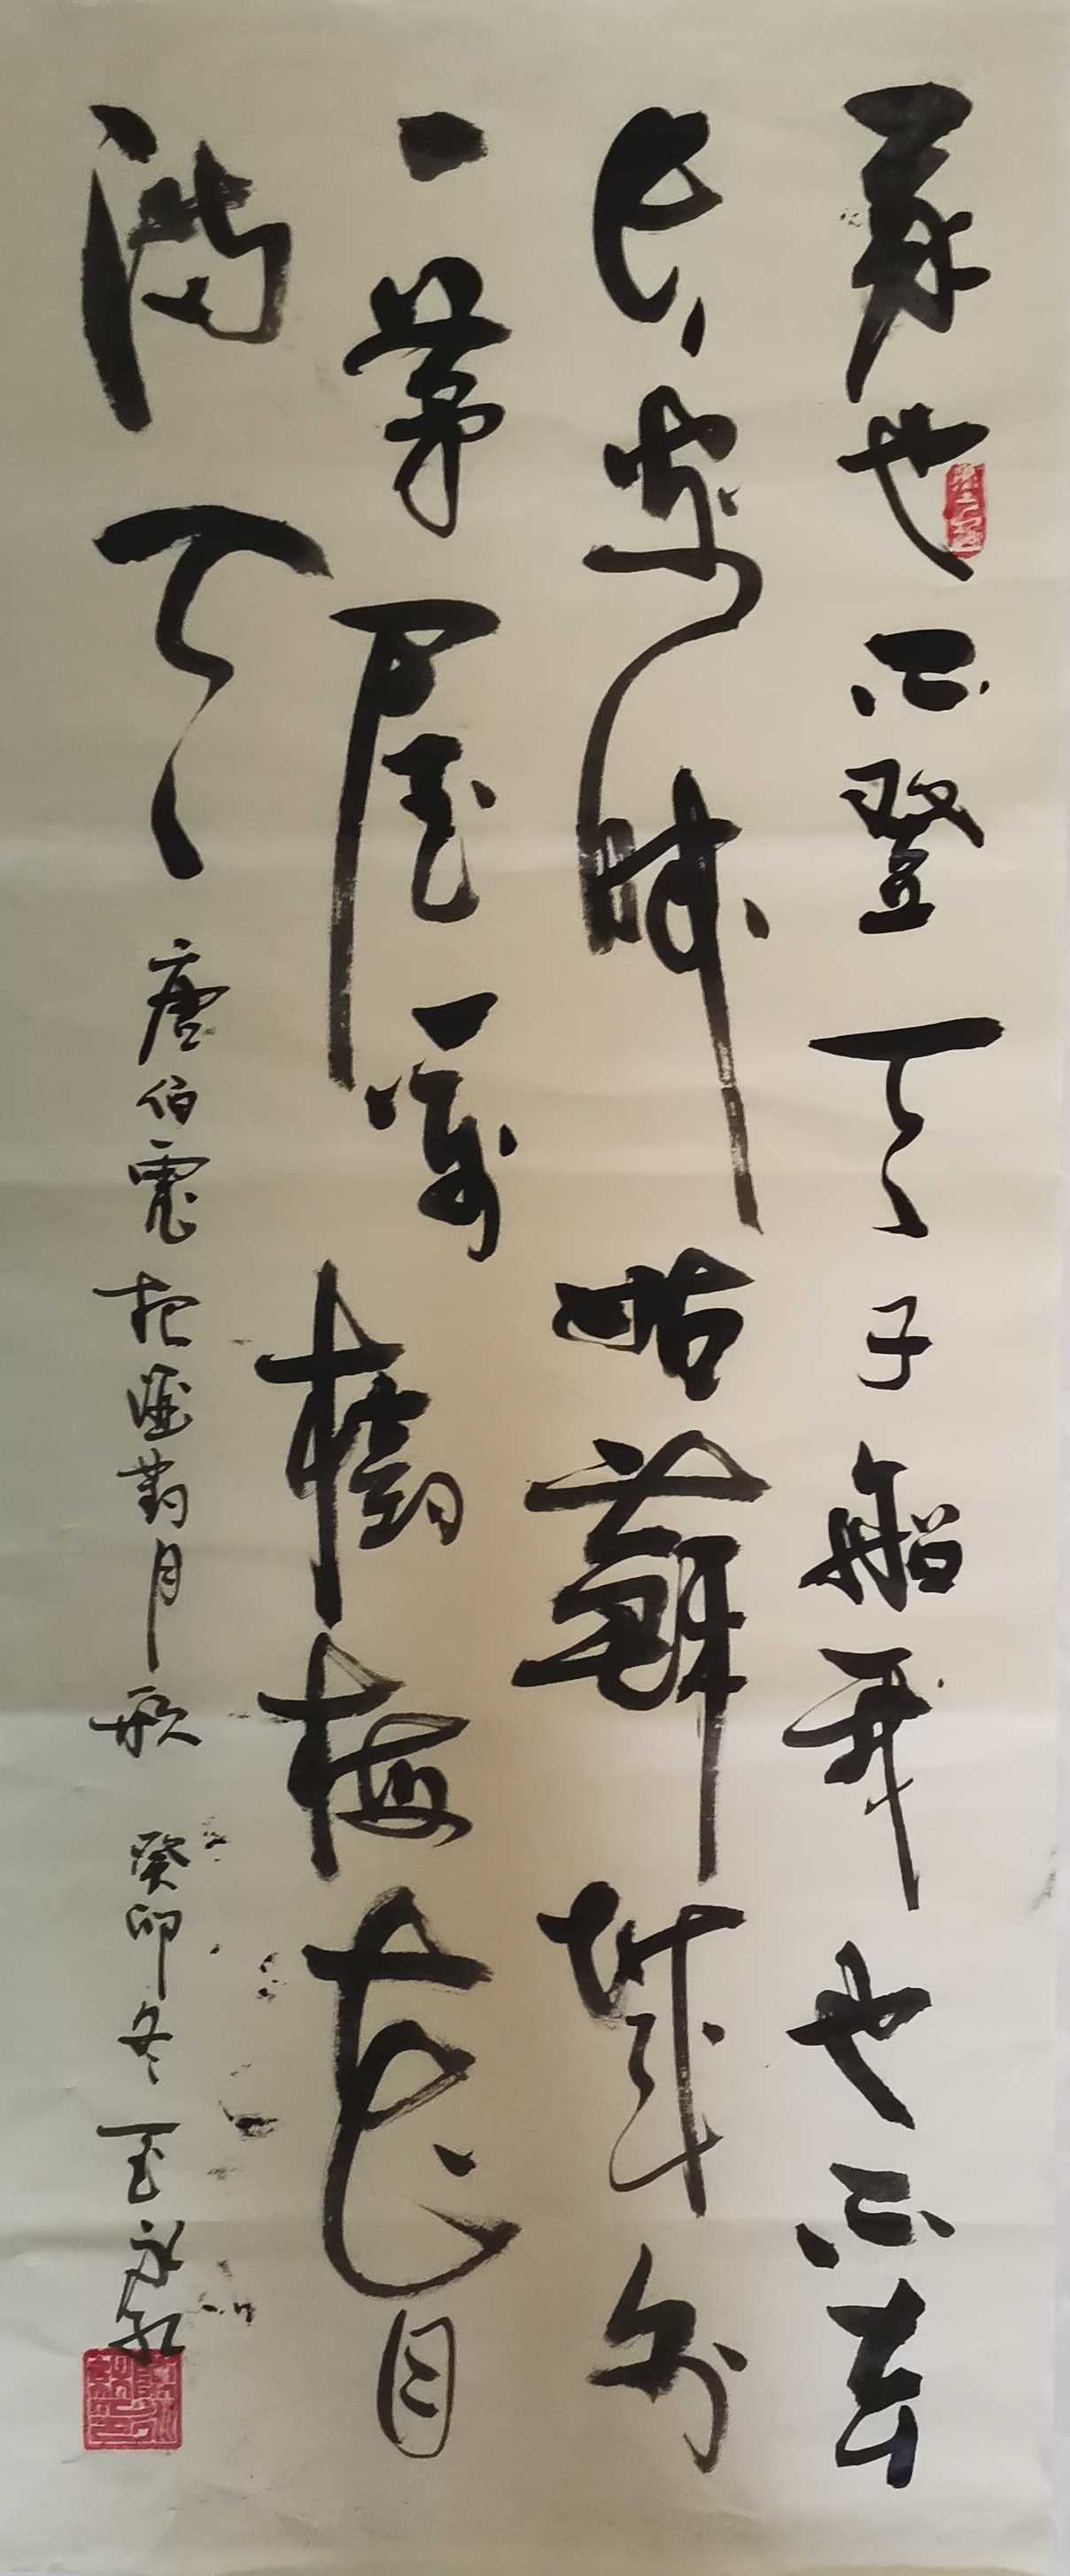 我也不登天子船我也不去
长安眠姑蘇城外
一茅屋萬樹梅花月
滿天
唐伯虎把酒對月歌 癸卯冬